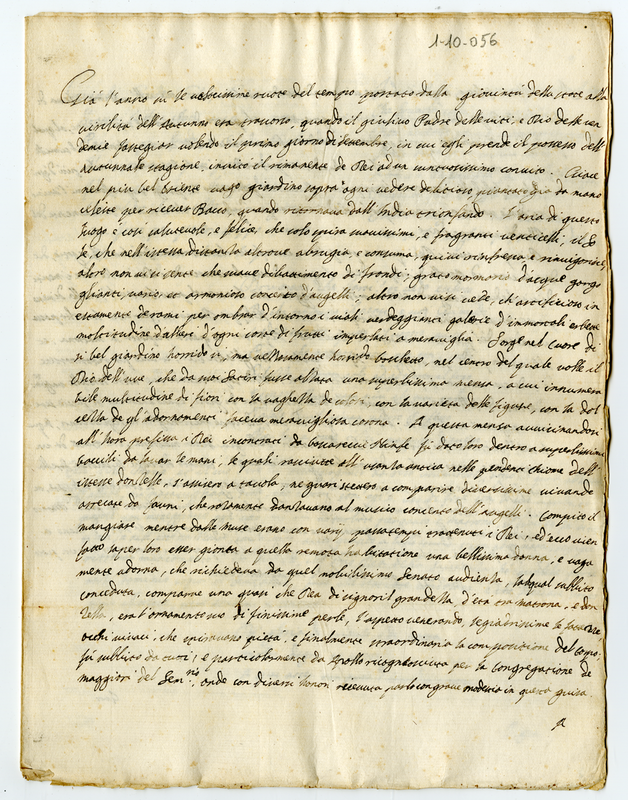 1-10-056
Già l'anno sù le velocissime ruote del tempo portato dalla gioventù della state alla
virilità dell'Autunno era trascorso, quando il giulivo Padre delle viti, e Dio delle ven
demie festeggiar volendo il primo giorno di settembre, in cui egli prende il possesso dell'
Autunnale stagione, invitò il rimanente de Dei ad un suntuosissimo convito. Giace
nel più bel Oriente vago giardino sopra ogni credere delicioso, piantato già da mano
celeste per ricever Bacco, quando ritornava dall'India trionfando. L'aria di questo
luogo è così salutevole, e felice, che solo spira soavissimi, e fragranti venticelli; il So
le, che nell'istessa distanza altrove abrugia, e consuma, quivi rinfresca, e rinvigorisce,
altro non vi si sente che suave dibatimento di frondi, grato mormorio d'acque gorgo
glianti, vario, et armonioso concerto d'augelli; altro non vi si vede, ch'artificioso in
trecciamento de rami, per ombrar d'intorno i viali verdeggianti galerie d'immortali erbette
moltitudine d'alberi d'ogni sorte di frutti impestati a meraviglia. Sorge nel cuore di
sì bel giardino horrido sì, ma vezzosamente horrido boschetto, nel centro del quale volle il
Dio dell'uve, che da suoi Satiri fusse alzata una superbissima mensa, a cui innumera
bile moltitudine di fiori, con la vaghezza de colori, con la varietà delle figure, con la dol
cezza de gl'adornamenti faceva meravigliosa corona. A questa mensa avvicinandosi
all'hora prefissa i Dei incontrati da boscarecci Ninfe fù dato loro dentro a superbissimi
bacili da lavar le mani, le quali rasciutte all'usanza antica nelle pendenti chiome dell'
istesse donzelle, s'assisero a tavola, ne guari stettero a comparire diversissime vivande
arrecate da fauni, che rozamente danzavano al musico concento dell'augelli. Compito il
mangiare mentre dalle Muse erano con varij passatempi trattenuti i Dei, ed ecco vien
fatto saper loro esser gionta a quella remota habitatione una bellissima donna, e vaga
mente adorna, che richiedeva da quel nobilissimo Senato audienza, la qual subbito
conceduta, comparve una quasi che Dea di signoril grandezza, d'età tra matrona, e don
zella, era l'ornamento suo di finissime perle, l'aspetto venerando, leggiadrissime le fattezze
occhi vivaci, che spiravano pietà, e finalmente straordinaria la compositione del corpo,
fù subbito da tutti, e particolarmente da Apollo riconosciuta per la Congregatione de
maggiori del Sem.rio, onde con diversi honori ricevuta parlò con grave modestia in questa guisa.